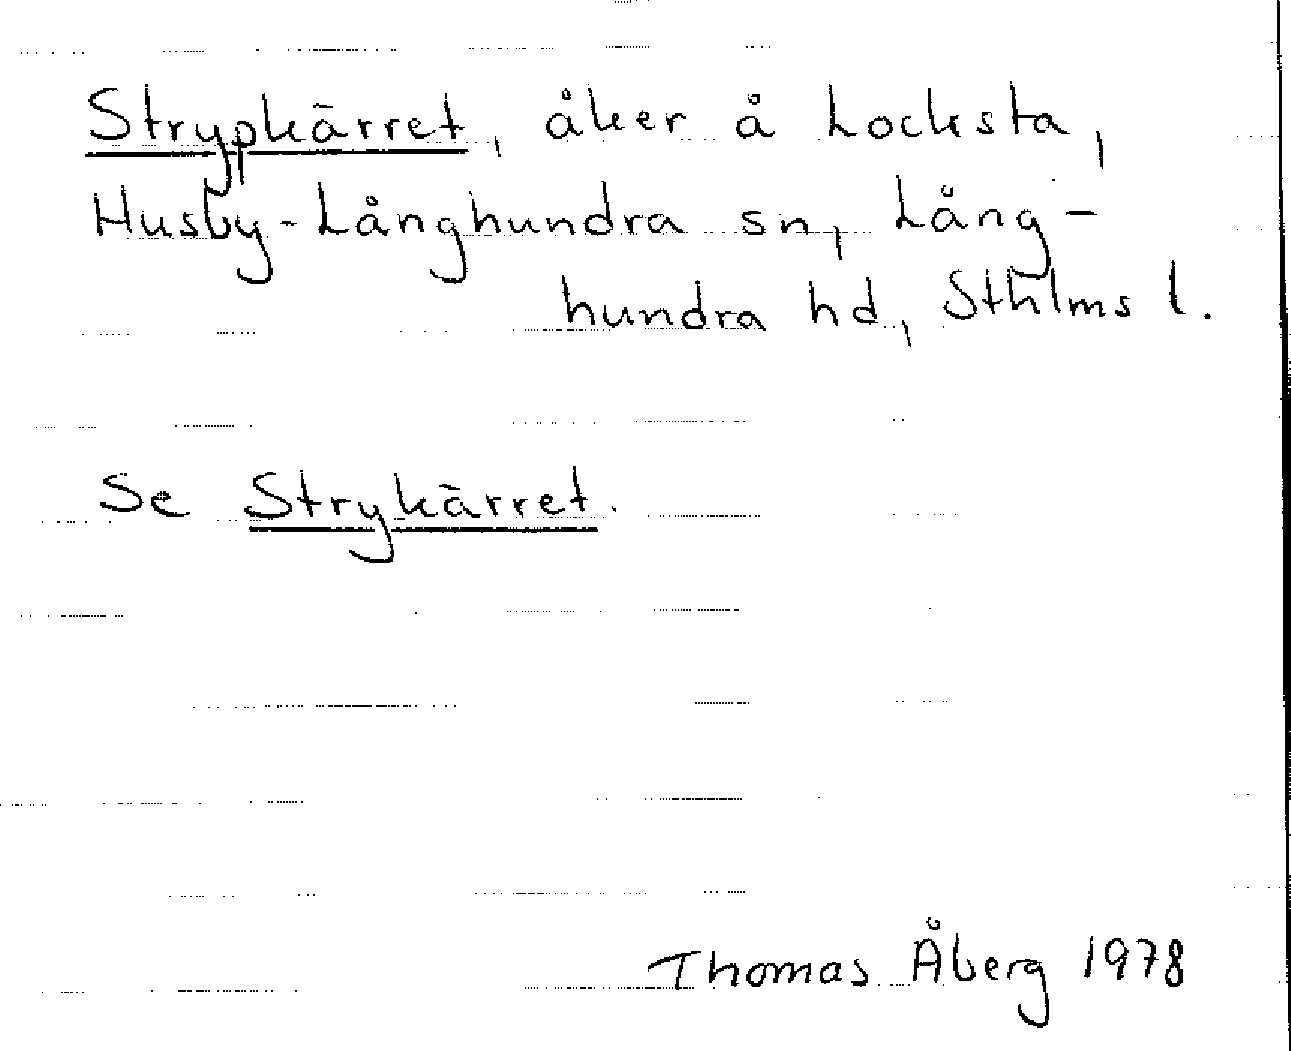 Strypkärret, åker å Locksta,
Husby-Långhundra sn, Lång-
hundra hd, Sthlms l.
Se Strykärret.
Thomas Åberg 1978